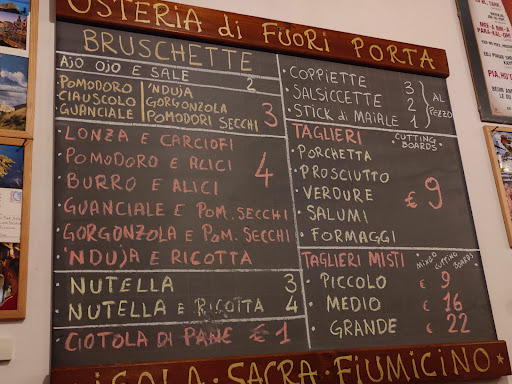 OSTERIA di FUORI PORTA
BRUSCHETTE
AJO OJO E SALE 2
POMODORO 'NDUJA
CIAUSCOLO GORGONZOLA 3
GUANCIALE POMODORI SECCHI
LONZA E CARCIOFI
POMODORO E ALICI 4
BURRO E ALICI
GUANCIALE E POM. SECCHI
GORGONZOLA E POM. SECCHI
'NDUJA E RICOTTA
NUTELLA 3
NUTELLA E RICOTTA 4
CIOTOLA DI PANE € 1
COPPIETTE 3 AL
SALSICCETTE 2 PEZZO
STICK di MAIALE 1
TAGLIERI CUTTING BOARDS
PORCHETTA
PROSCIUTTO
VERDURE € 9
SALUMI
FORMAGGI
TAGLIERI MISTI CUTTING BOARDS
PICCOLO € 9
MEDIO € 16
GRANDE € 22
ISOLA · SACRA · FIUMICINO